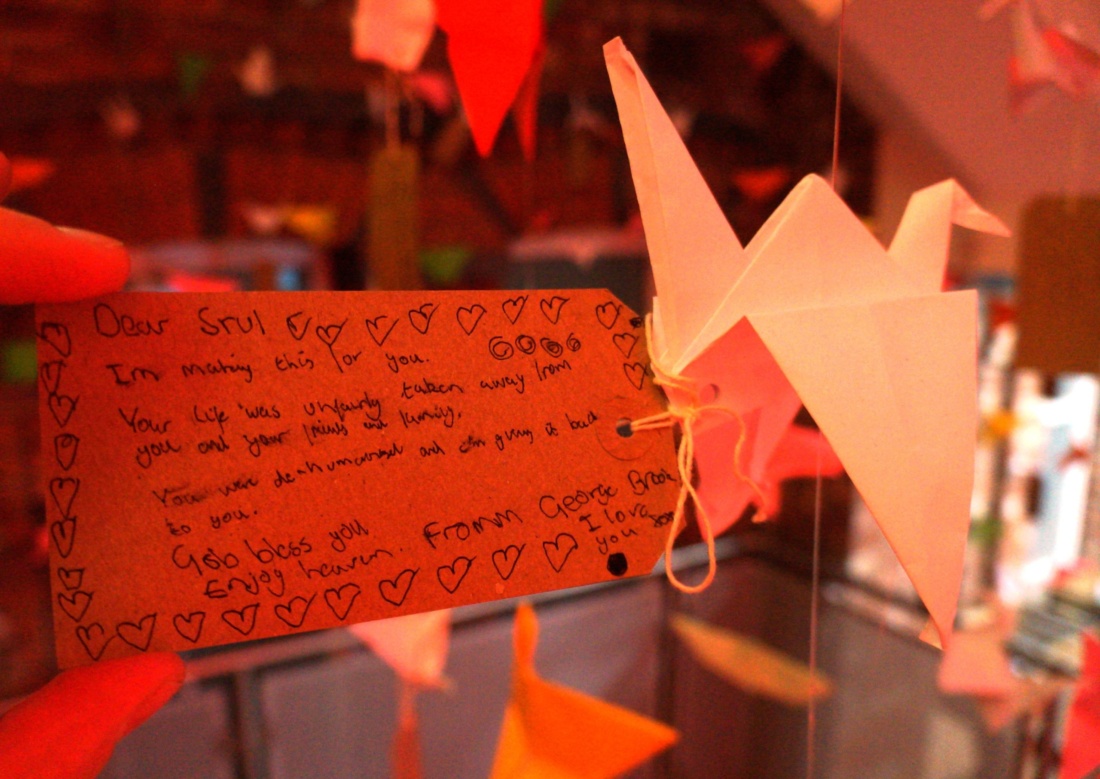 Dear Srul
Im making this for you.
Your life was unfairly taken away from
you and your friends and family.
You were dehumanised and im giving it back
to you.
God bless you
Enjoy heaven. From George Brook
I love
you